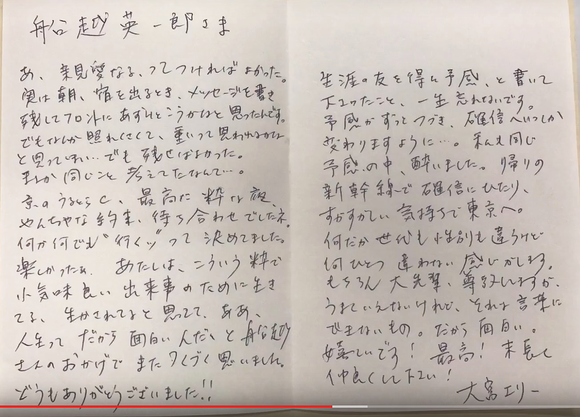 舟越 英一郎さま
あ、親愛なる、ってつければよかった。
実は朝、宿を出るとき、メッセージを書き
残してフロントにあずけとこうかなと思ったんです。
でもなんか照れくさくて、重いって思われるかな
と思ってしまい…でも残せばよかった。
まさか同じこと考えてたなんて…。
京のうるとらC、最高に粋な夜、
やんちゃな約束、待ち合わせでしたネ。
何が何でも"行くッ"って決めてました。
楽しかったぁ。あたしは、こういう粋で
小気味良い出来事のために生き
てる、生かされてると思ってて、ああ、
人生ってだから面白いんだぃと舟越
さんのおかげでまたつくづく思いました。
どうもありがとうございました!!
生涯の友を得た予感、と書いて
下さったこと、一生忘れないです。
予感がずっとつづき、確信へいつしか
変わりますように…。私も同じ
予感の中、酔いました。帰りの
新幹線で確信にひたり、
すがすがしい気持ちで東京へ。
何だか世代も性別も違うけど
何ひとつ違わない感じがします。
もちろん大先輩、尊敬しますが、
うまくいえないけれど、それは言葉に
できないもの。だから面白い。
嬉しいです!最高!末長く
仲良くして下さい!
大宮エリー